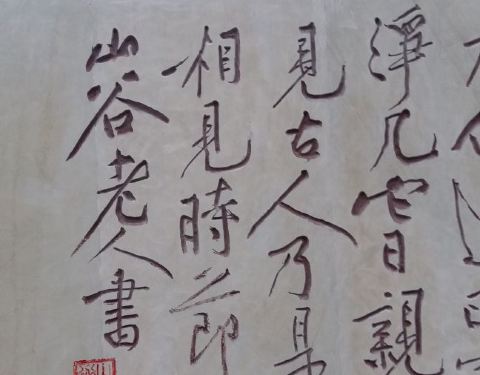 淨几它日親
見古人乃是
相見時節
山谷老人書